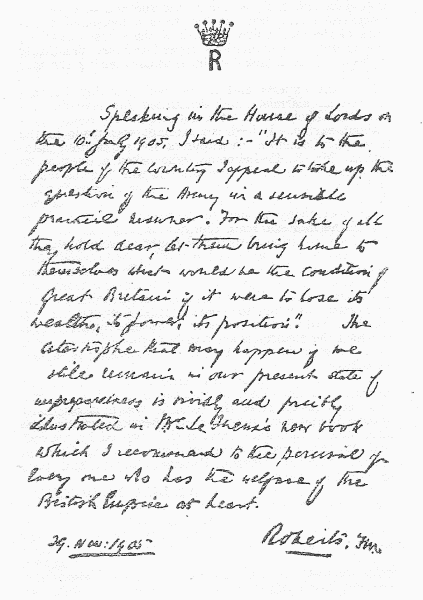 R
Speaking in the House of Lords on
the 10th July 1905, I said :- "It is to the
people of the country I appeal to take up the
question of the Army in a sensible
practical manner. For the sake of all
they hold dear, let them bring home to
themselves what would be the condition of
Great Britain if it were to lose its
wealth, its power, its position". The
catastrophe that may happen if we
still remain in our present state of
unpreparedness is vividly and forcibly
illustrated in Mr. Le Queux's new book
which I recommend to the perusal of
every one who has the welfare of the
British Empire at heart.
29. Nov: 1905 Roberts, F.M.